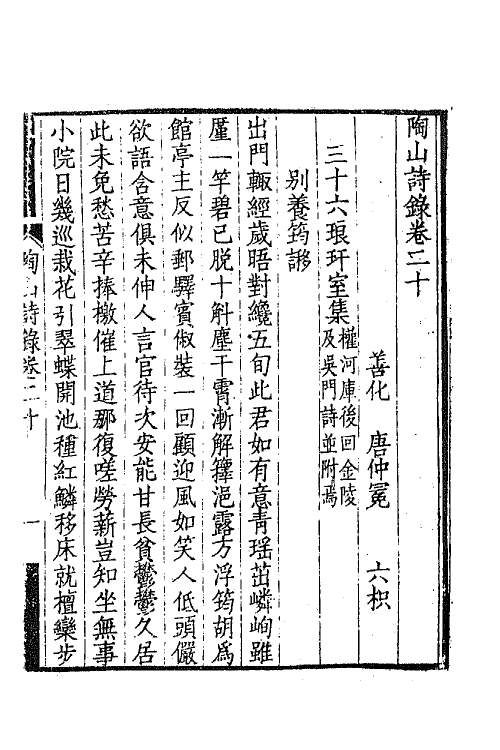 陶山詩錄卷二十
善化　唐仲冕　六枳
三十六琅玕室集權河庫後回金陵及吳門詩並附焉
別養筠謻
出門輙經歲晤對纔五旬此君如有意青瑶茁嶙峋雖
廑一竿碧已脱十斛塵干霄漸解籜浥露方浮筠胡爲
館亭主反似郵驛賓俶裝一回顧迎風如笑人低頭儼
欲語含意俱未伸人言官待次安能甘長貧鬱鬱久居
此未免愁苦辛捧檄催上道那復嗟勞薪豈知坐無事
小院日幾巡栽花引翠蝶開池種紅鱗移床就檀欒步
陶山詩錄卷二十　一